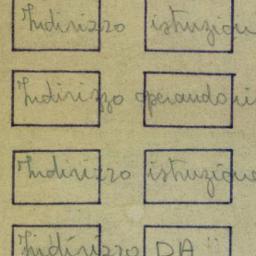 Indirizzo istruzione
Indirizzo operando
Indirizzo istruzione
Indirizzo DA